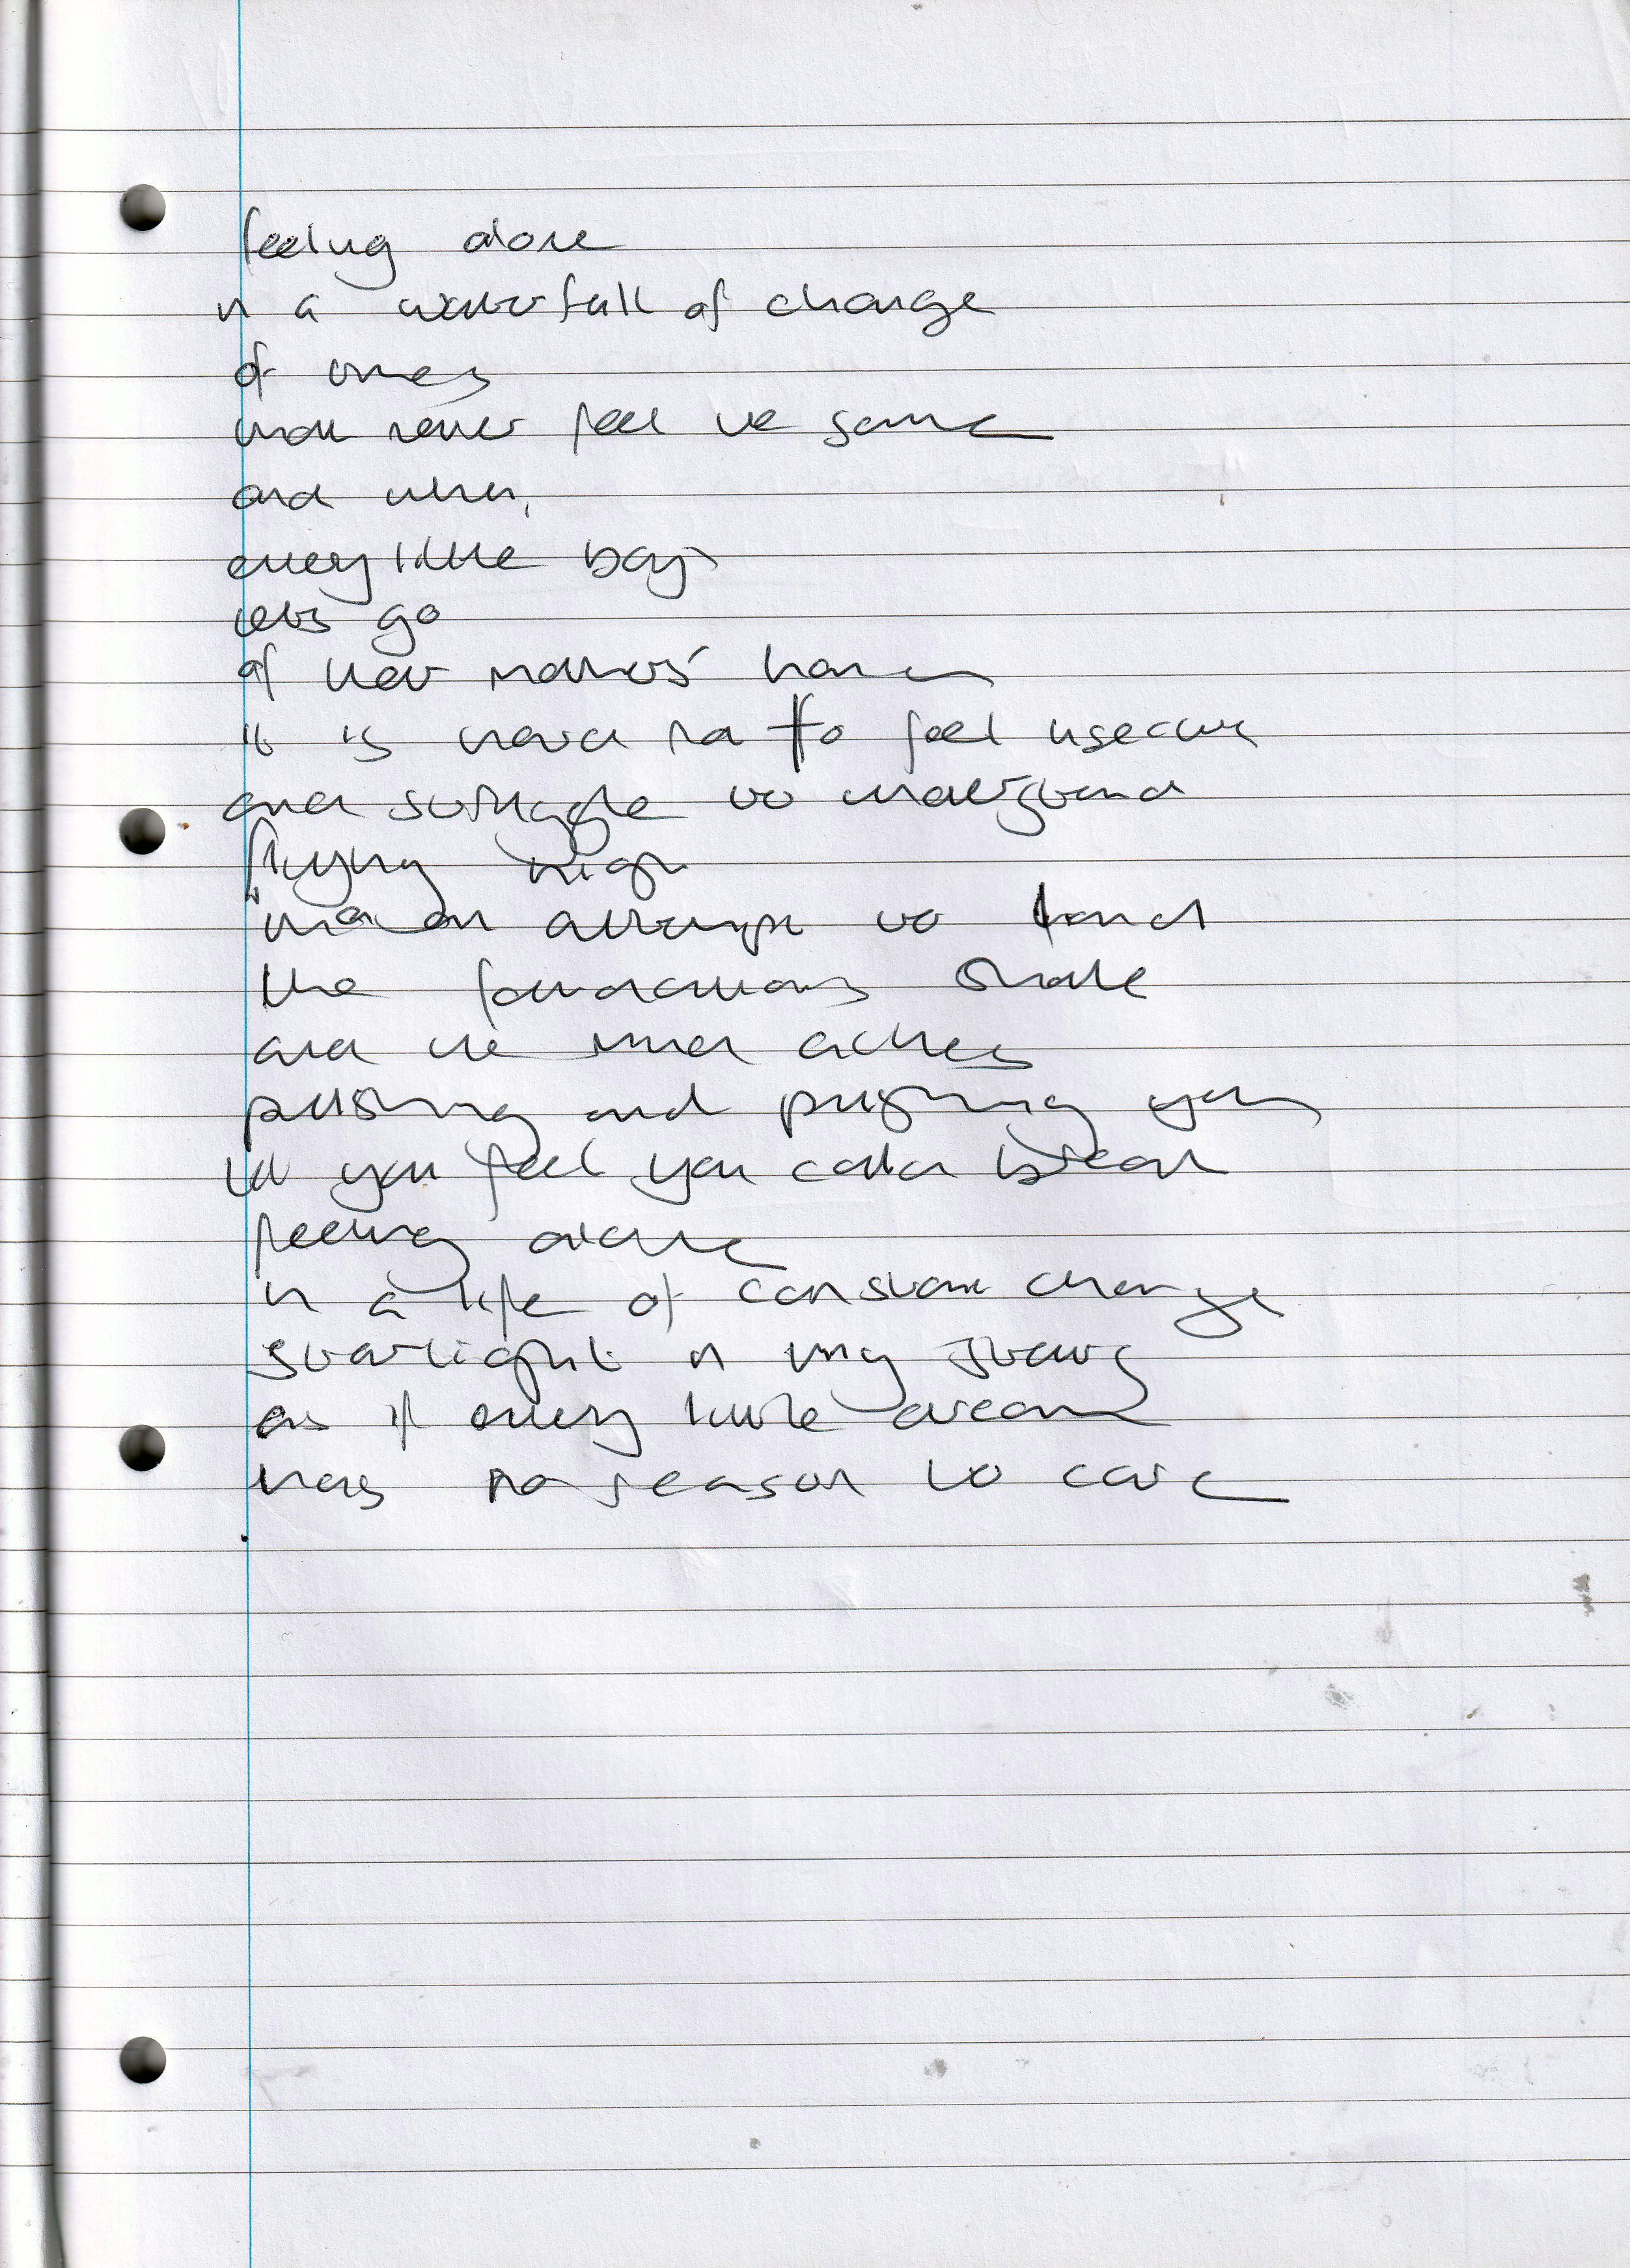 feeling alone
in a waterfall of change
of times
that never feel the same
and when,
every little boy
lets go
of their mothers' hand
it is hard not to feel insecure
and struggle to understand
flying high
in an attempt to land
the foundations shake
and the mind aches
pushing and pushing you
till you feel you could break
feeling alone
in a life of constant change
starlight in my
as if every little dream
has no reason to care